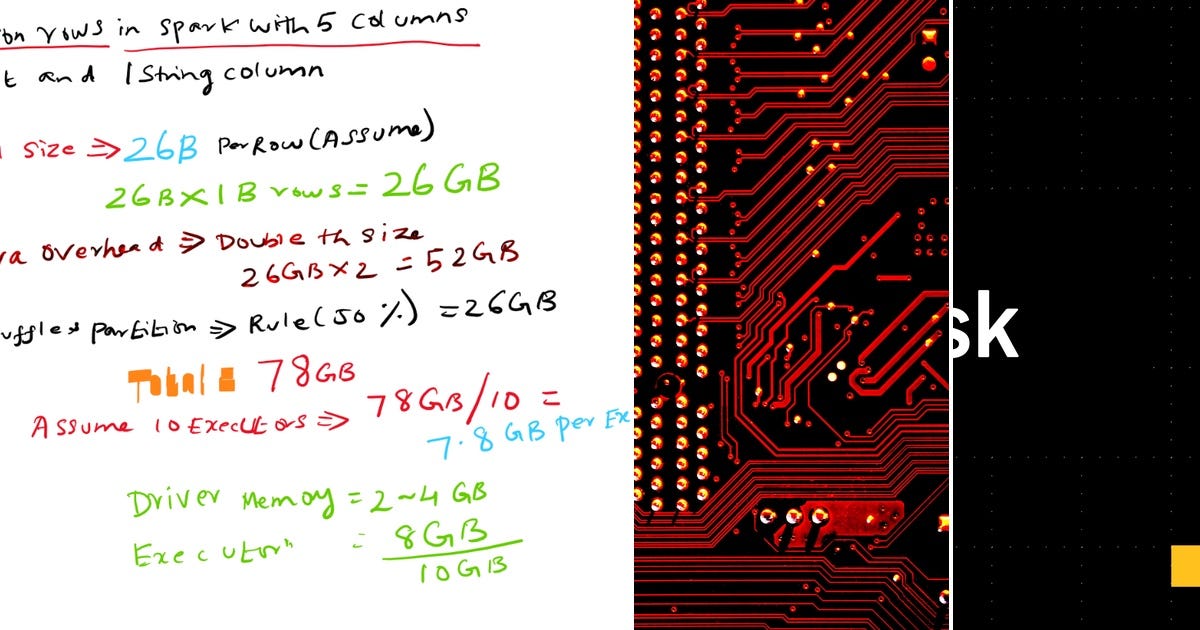 on rows in spark with 5 columns
t and 1 String column
size ⇒ 26B Per Row (Assume)
26B × 1B rows = 26GB
a overhead ⇒ Double th size
26GB × 2 = 52GB
uffles partition ⇒ Rule (50 %) = 26GB
Total = 78GB
Assume 10 Executors ⇒ 78GB/10 =
7.8 GB per Ex
Driver Memoy = 2~4 GB
Executor" = 8GB
10GB
sk